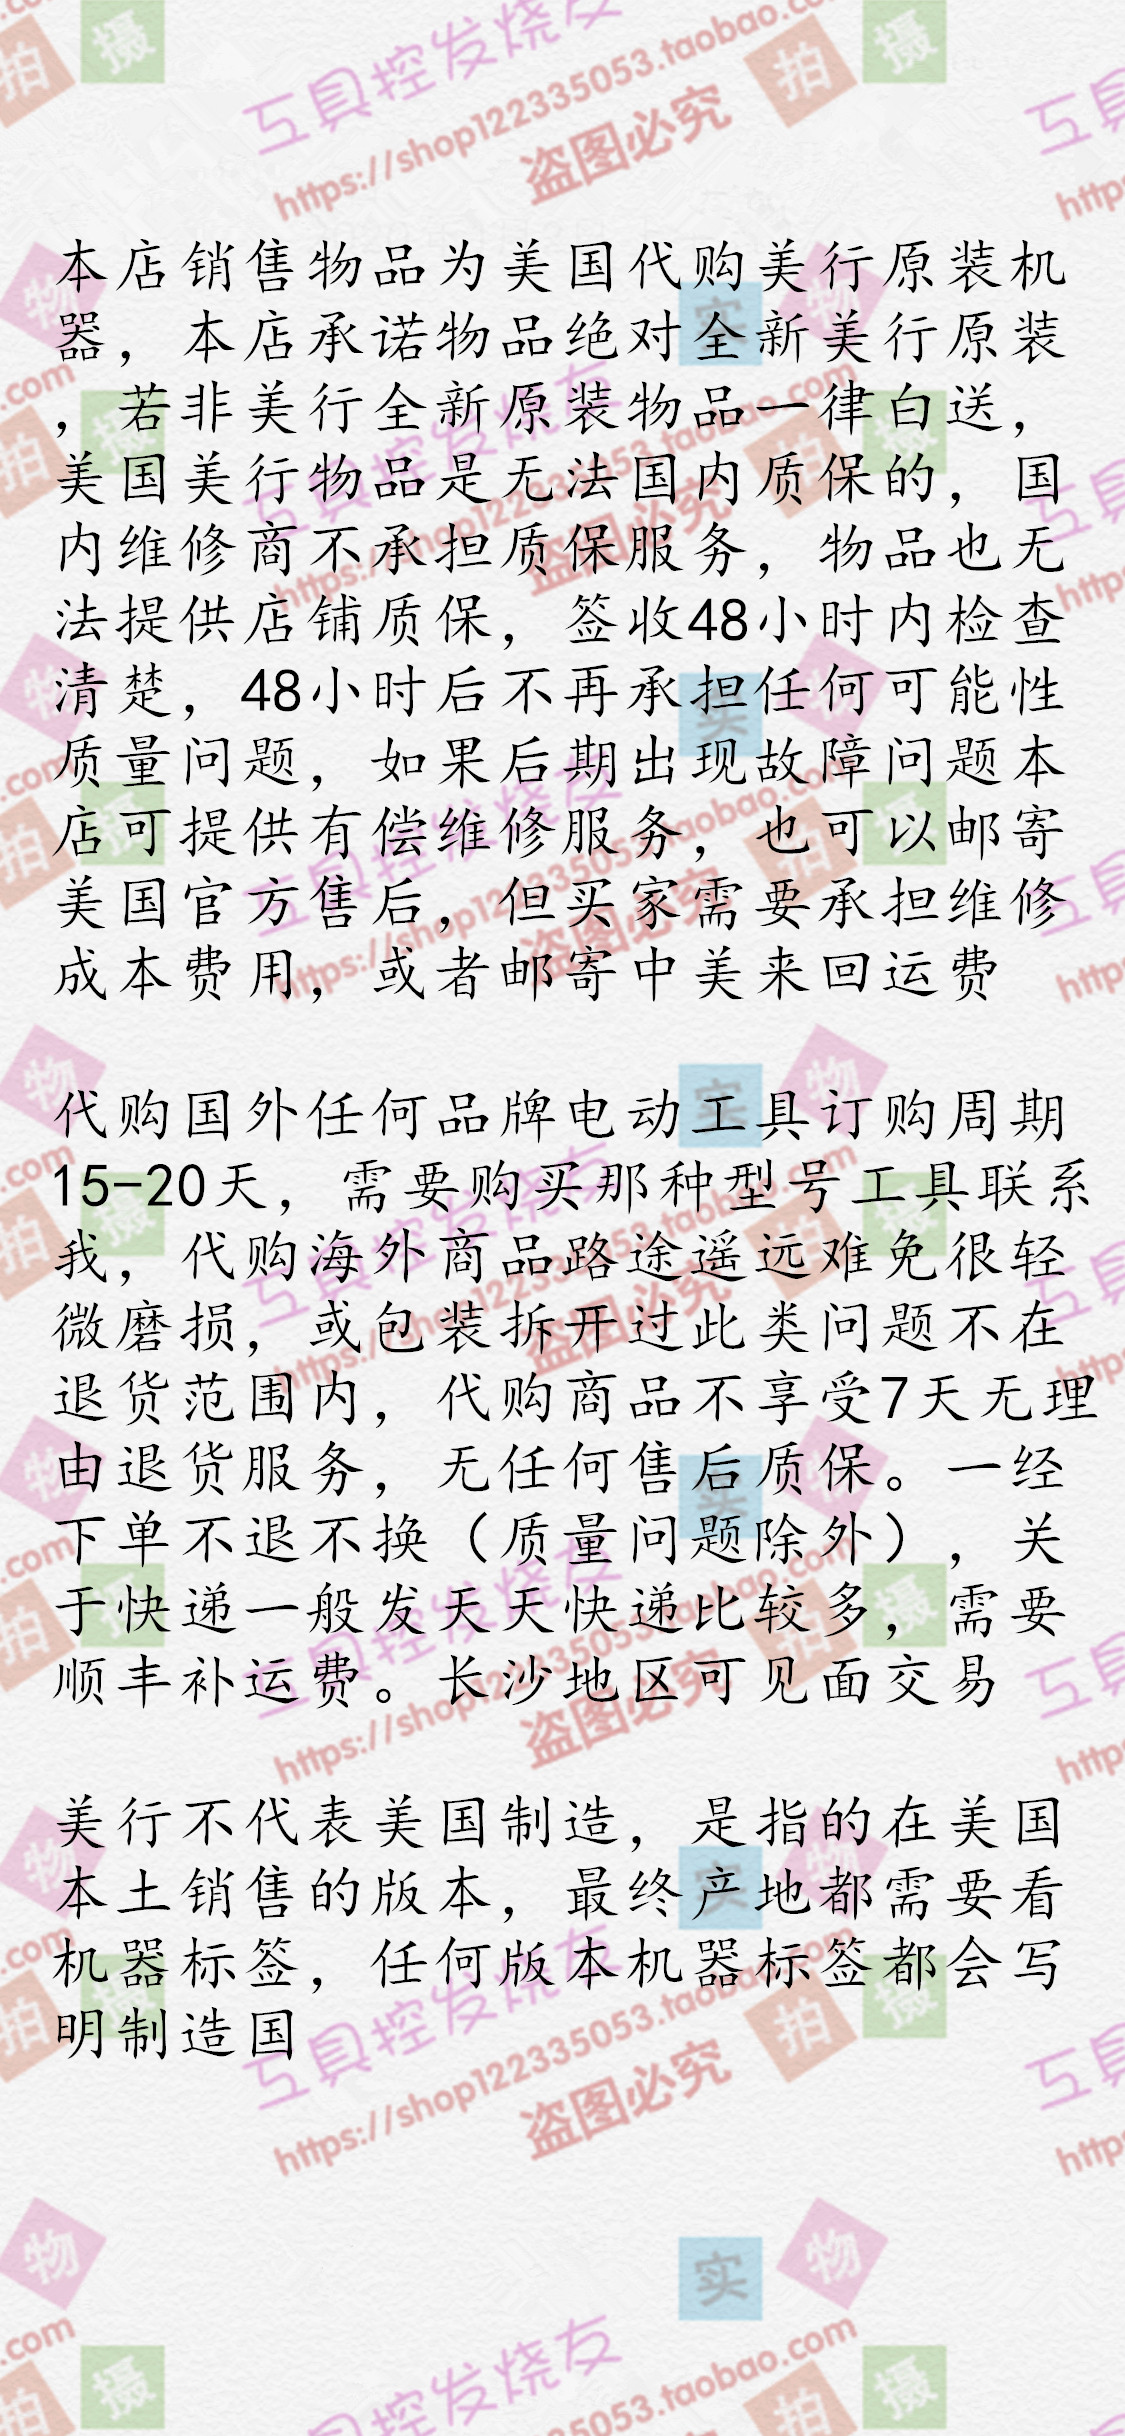 本店销售物品为美国代购美行原装机
器，本店承诺物品绝对全新美行原装
，若非美行全新原装物品一律白送，
美国美行物品是无法国内质保的，国
内维修商不承担质保服务，物品也无
法提供店铺质保，签收48小时内检查
清楚，48小时后不再承担任何可能性
质量问题，如果后期出现故障问题本
店可提供有偿维修服务，也可以邮寄
美国官方售后，但买家需要承担维修
成本费用，或者邮寄中美来回运费
代购国外任何品牌电动工具订购周期
15-20天，需要购买那种型号工具联系
我，代购海外商品路途遥远难免很轻
微磨损，或包装拆开过此类问题不在
退货范围内，代购商品不享受7天无理
由退货服务，无任何售后质保。一经
下单不退不换（质量问题除外），关
于快递一般发天天快递比较多，需要
顺丰补运费。长沙地区可见面交易
美行不代表美国制造，是指的在美国
本土销售的版本，最终产地都需要看
机器标签，任何版本机器标签都会写
明制造国
工具控发烧友
https://shop122335053.taobao.com
盗图必究
实
物
拍
摄